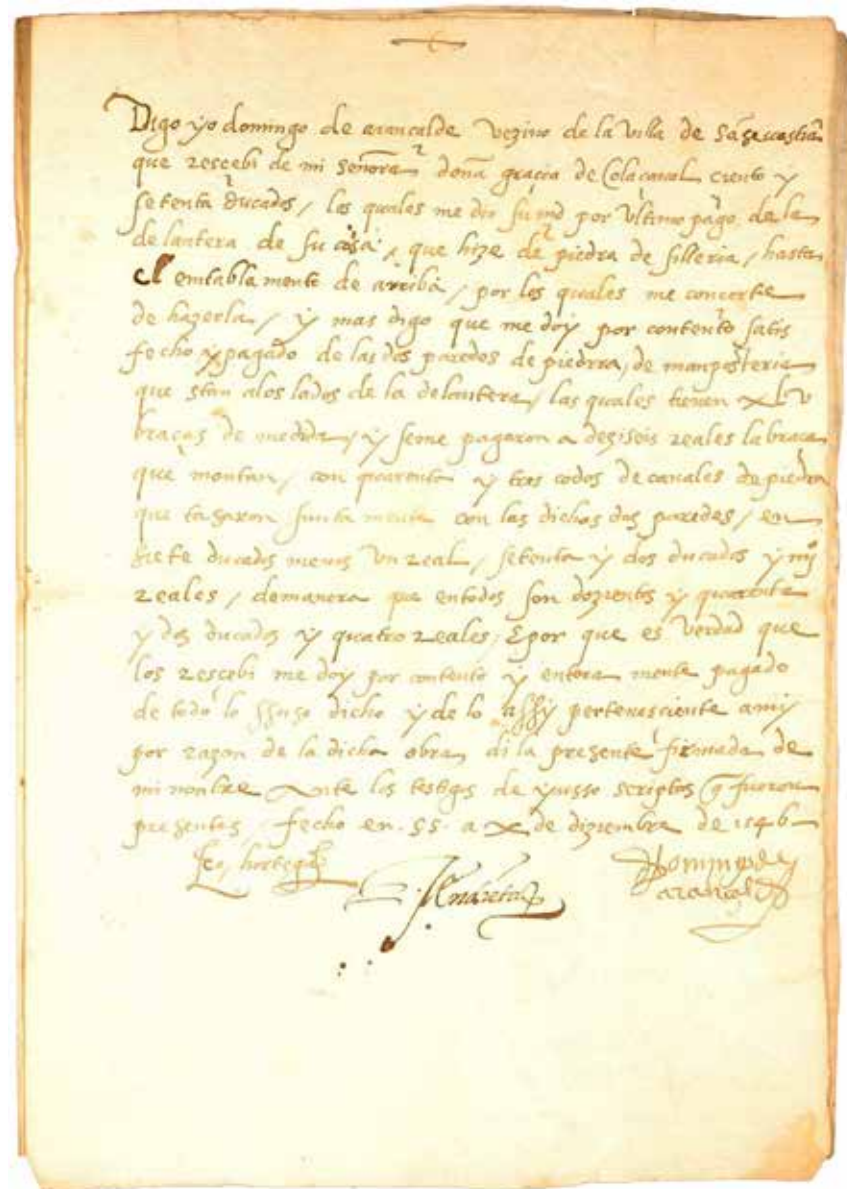 Digo yo domingo de arancalde vezino de la villa de Sã sevastiã
que rescebi de mi señora doña gracia de Olacaval ciento y
setenta ducados / los quales me dio su md por ultimo pago de la
delantera de su casa / que hize de piedra de silleria / hasta
el entablamento de arriba / por los quales me concerte
de hazerla / y mas digo que me doy por contento satis
fecho y pagado de las dos paredes de piedra, de manposteria
que stan a los lados de la delantera / las quales tienen xlv
bracas de medida / y seme pagaron a deziseis reales la braca
que montan / con quarenta y tres codos de canales de piedra
que tasaron junta mente con las dichas dos paredes / en
siete ducados menos un real / setenta y dos ducados y iiijº
reales / de manera que en todos son dozientos y quarenta
y dos ducados y quatro reales / E por que es verdad que
los rescebi me doy por contento y entera mente pagado
de todo lo ssuso dicho y de lo assy pertenesciente a mi /
por razon de la dicha obra di la presente firmada de
mi nonbre Ante los testigos de yusso scriptos q̃ fueron
presentes / fecho en .SS. a x de diziembre de 1546
hortega
Domingo de
arancalde